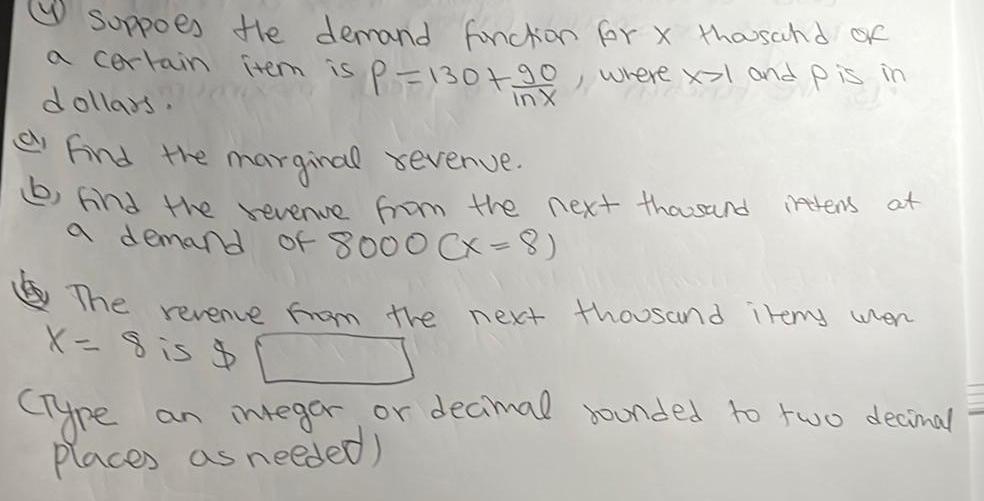 (4) suppoes the demand function for x thousand of
a certain item is P = 130 + 90/lnx, where x>1 and p is in
dollars.
a) Find the marginal revenue.
b) find the revenue from the next thousand at
a demand of 8000 (x = 8)
The revenue from the next thousand items when
x = 8 is $
(Type an integer or decimal rounded to two decimal
places as needed)